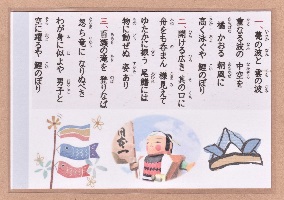 一、甍の波と 雲の波
重なる波の 中空を
橘かおる 朝風に
高く泳ぐや 鯉のぼり
二、開ける広き 其の口に
舟をも呑まん 様見えて
ゆたかに振う 尾鰭には
物に動ぜぬ 姿あり
三、百瀬の滝を 登りなば
忽ち竜に なりぬべき
わが身に似よや 男子と
空に躍るや 鯉のぼり
日本一